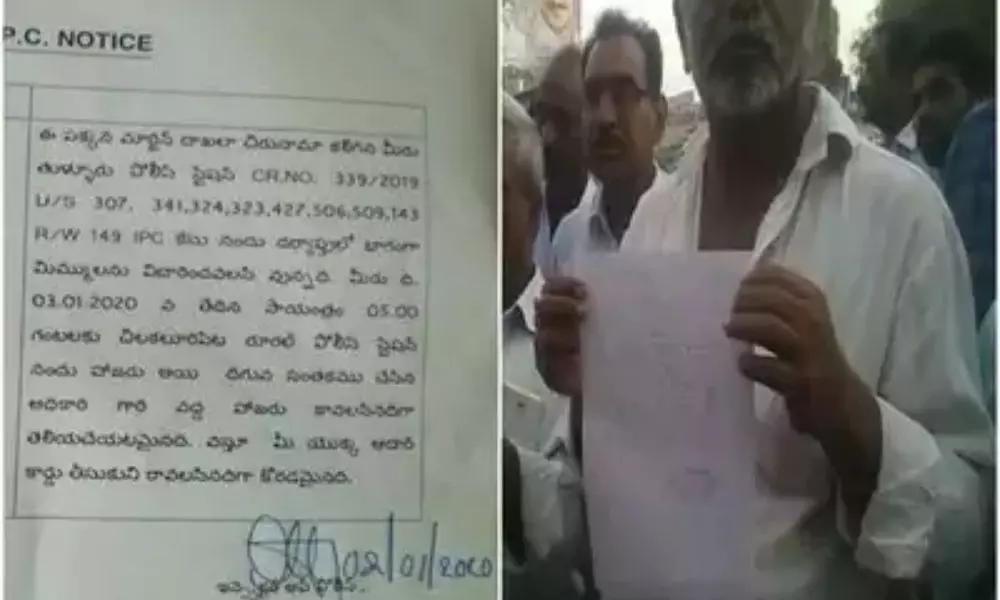 P.C. NOTICE
ఈ పక్కన మార్జిన్ దాఖలా చిరునామా కలిగిన మీరు
తుళ్ళూరు పోలీస్ స్టేషన్ CR.NO. 339/2019
U/S 307, 341,324,323,427,506,509,143
R/W 149 IPC కేసు నందు దర్యాప్తులో భాగంగా
మిమ్ములను విచారించవలసి వున్నది. మీరు ది.
03.01.2020 వ తేదిన సాయంత్రం 05.00
గంటలకు చిలకలూరిపేట రూరల్ పోలీస్ స్టేషన్
నందు హాజరు అయి దిగువ సంతకము చేసిన
అధికారి గారి వద్ద హాజరు కావలసినదిగా
తెలియచేయటమైనది. వస్తూ మీ యొక్క ఆధార్
కార్డు తీసుకుని రావలసినదిగా కోరడమైనది.
02/01/2020
ఇన్స్పెక్టర్ ఆఫ్ పోలీస్..